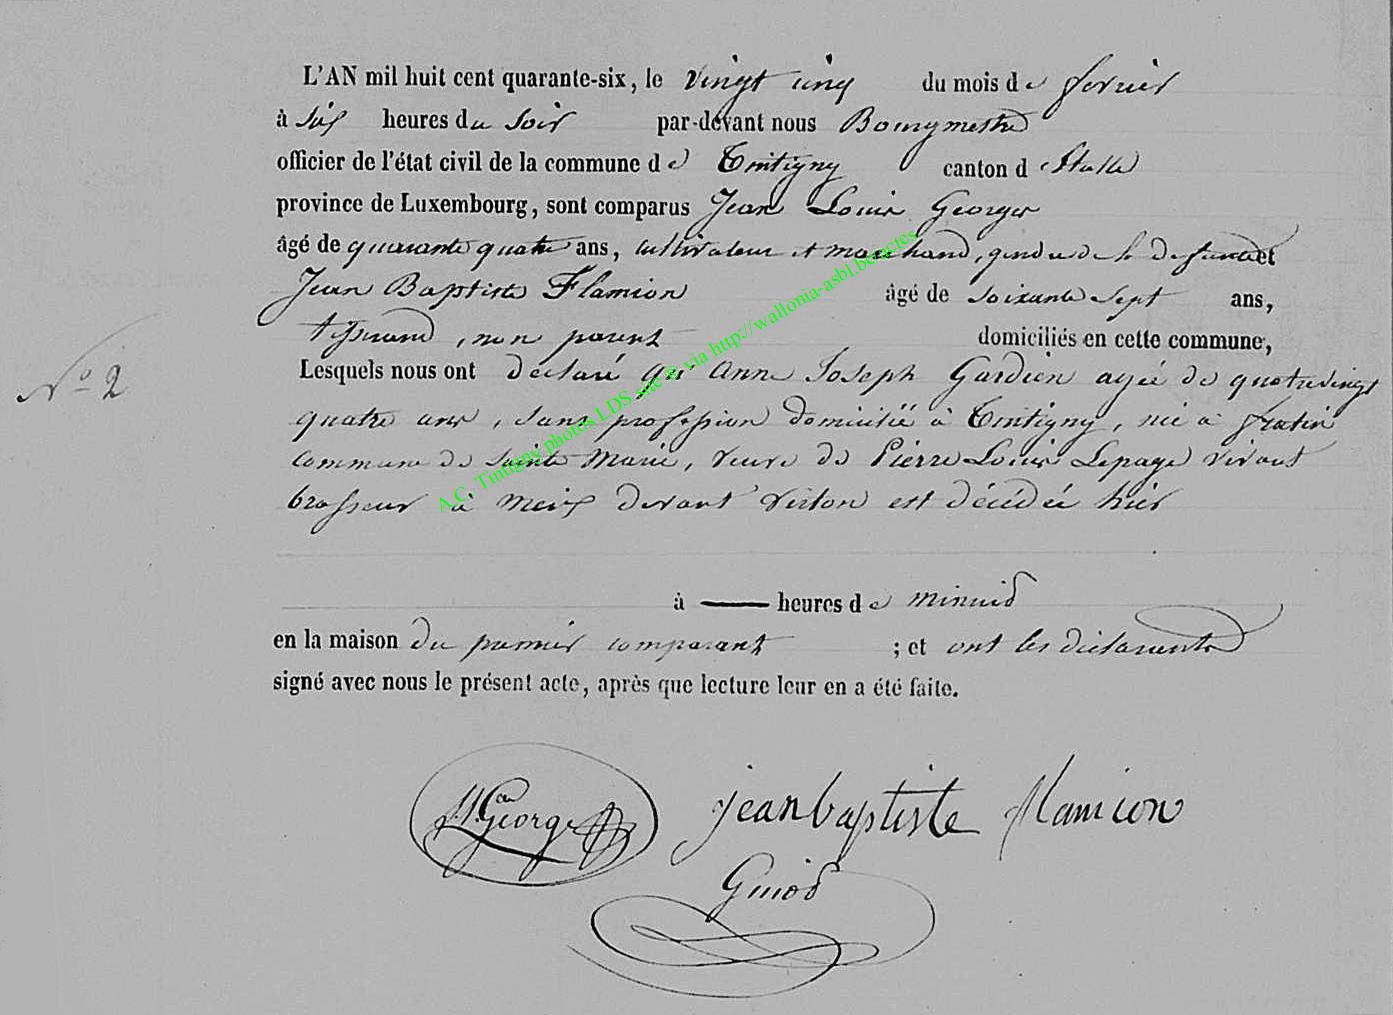 L'AN mil huit cent quarante-six, le vingt cinq du mois de fevrier
à six heures du soir par-devant nous Bourgmestre
officier de l'état civil de la commune de Tintigny canton d'Etalle
province de Luxembourg, sont comparus Jean Louis Georges
âgé de quarante quatre ans, cultivateur et marchand, gendre de la defunte et
Jean Baptiste Flamion âgé de soixante sept ans,
tisserand, non parent domiciliés en cette commune,
N° 2
Lesquels nous ont declaré qu'Anne Joseph Gardien agée de quatrevingt
quatre ans, sans profession domiciliée à Tintigny, née à fratin
commune de Sainte Marie, veuve de Pierre Louis Lepage vivant
brasseur à Meix devant Virton est décédée hier
à heures de minuit
en la maison du premier comparant ; et ont les déclarants
signé avec nous le présent acte, après que lecture leur en a été faite.
Georges jeanbaptiste flamion
Guiod
A.C. Tintigny photos LDS site © via http://wallonia-asbl.be/actes